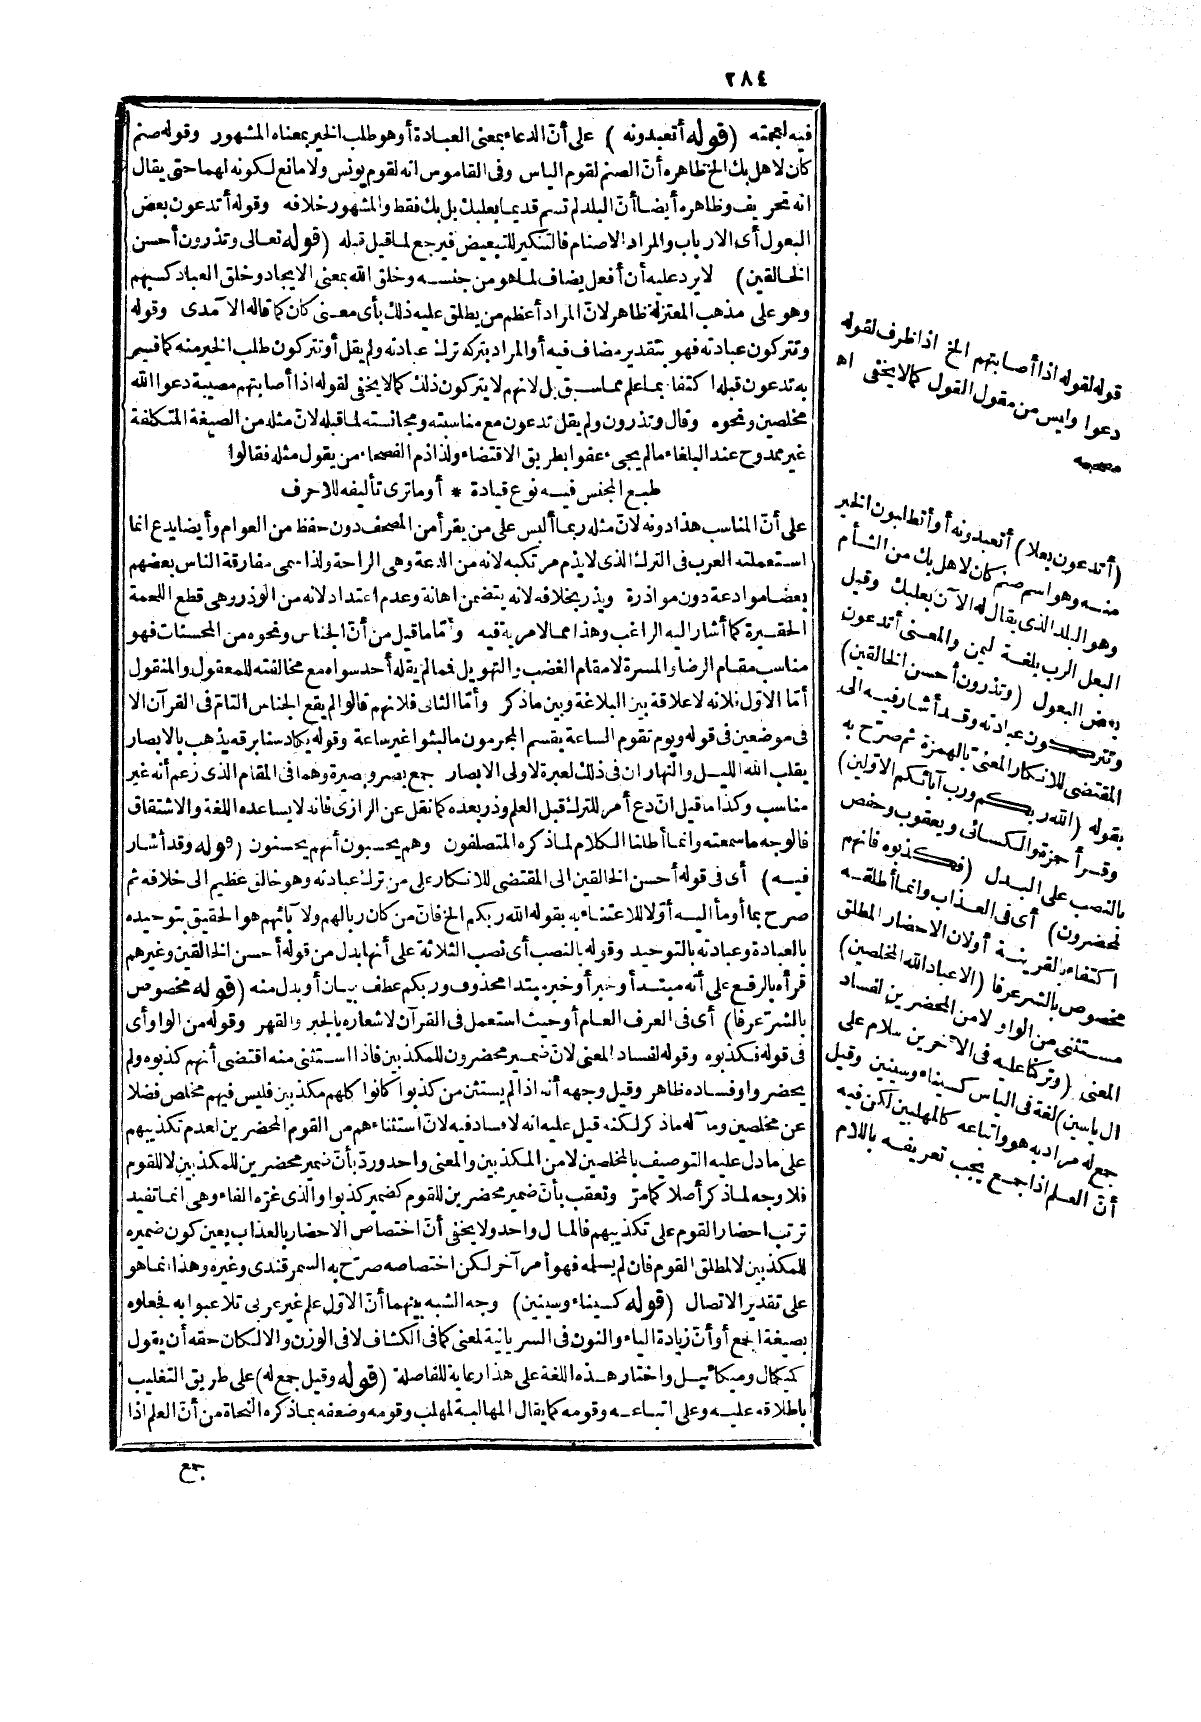 ٢٨٤
فيه لعجمته (قوله أتعبدونه) على أنّ الدعاء بمعنى العبادة أو هو طلب الخير بمعناه المشهور وقوله صنم
كان لاهل بك الخ ظاهره أنّ الصنم لقوم الياس وفى القاموس انه لقوم يونس ولا مانع لكونه لهما حتى يقال
انه تحريف وظاهره أيضا أنّ البلد لم تسم قديما بعلبك بل بك فقط والمشهور خلافه وقوله أتدعون بعض
البعول أى الارباب والمراد الاصنام فالتنكير للتبعيض فيرجع لما قيل قبله (قوله تعالى وتذرون أحسن
الخالقين) لا يرد عليه أن أفعل يضاف لما هو من جنسه وخلق الله بمعنى الايجاد وخلق العباد كسبهم
وهو على مذهب المعتزلة ظاهر لانّ المراد أعظم من يطلق عليه ذلك بأى معنى كان كما قاله الآمدى وقوله
وتتركون عبادته فهو بتقدير مضاف فيه أو المراد بتركه ترك عبادته ولم يقل أو تتركون طلب الخير منه كما فسر
به تدعون قبله اكتفاء بما علم مما سبق بل لانهم لا يتركون ذلك كما لا يخفى لقوله اذا أصابتهم مصيبة دعوا الله
مخلصين ونحوه وقال وتذرون ولم يقل تدعون مع مناسبته ومجانسته لما قبله لانّ مثله من الصيغة المتكلفة
غير ممدوح عند البلغاء ما لم يجىء عفوا بطريق الاقتضاء ولذا ذم الفصحاء من يقول مثله فقالوا
طبع المجنس فيه نوع قيادة * أو ما ترى تأليفه للاحرف
على أنّ المناسب هذا دونه لانّ مثله ربما ألبس على من يقرأ من المصحف دون حفظ من العوام وأيضا يدع انما
استعملته العرب فى الترك الذى لا يذم مرتكبه لانه من الدعة وهى الراحة ولذا سمى مفارقة الناس بعضهم
بعضا موادعة دون مواذرة ويذر بخلافه لانه يتضمن اهانة وعدم اعتداد لانه من الوذر وهى قطع اللحمة
الحقيرة كما أشار اليه الراغب وهذا مما لا مرية فيه وأمّا ما قيل من أنّ الجناس ونحوه من المحسنات فهو
مناسب مقام الرضا والمسرة لا مقام الغضب والتهويل فمما لم يقله أحد سواه مع مخالفته للمعقول والمنقول
أمّا الاوّل فلانه لا علاقة بين البلاغة وبين ما ذكر وأمّا الثانى فلانهم قالوا لم يقع الجناس التام فى القرآن الا
فى موضعين فى قوله ويوم تقوم الساعة يقسم المجرمون ما لبثوا غير ساعة وقوله يكاد سنا برقه يذهب بالابصار
يقلب الله الليل والنهار ان فى ذلك لعبرة لاولى الابصار جمع بصر وبصيرة وهما فى المقام الذى زعم أنه غير
مناسب وكذا ما قيل انّ دع أمر للترك قبل العلم وذر بعده كما نقل عن الرازى فانه لا يساعده اللغة والاشتقاق
فالوجه ما سمعته وانما أطلنا الكلام لما ذكره المتصلفون وهم يحسبون أنهم يحسنون (قوله وقد أشار
فيه) أى فى قوله أحسن الخالقين الى المقتضى للانكار على من ترك عبادته وهو خالق عظيم الى خلافه ثم
صرح بما أومأ اليه أوّلا للاعتناء به بقوله الله ربكم الخ فانّ من كان ربا لهم ولآبائهم هو الحقيق بتوحيده
بالعبادة وعبادته بالتوحيد وقوله بالنصب أى نصب الثلاثة على أنها بدل من قوله أحسن الخالقين وغيرهم
قرأه بالرفع على أنه مبتدأ وخبر أو خبر مبتدا محذوف وربكم عطف بيان أو بدل منه (قوله مخصوص
بالشرّ عرفا) أى فى العرف العام أو حيث استعمل فى القرآن لاشعاره بالجبر والقهر وقوله من الواو أى
فى قوله فكذبوه وقوله لفساد المعنى لانّ ضمير محضرون للمكذبين فاذا استثنى منه اقتضى أنهم كذبوه ولم
يحضروا وفساده ظاهر وقيل وجهه أنه اذا لم يستثن من كذبوا كانوا كلهم مكذبين فليس فيهم مخلص فضلا
عن مخلصين ومآله ما ذكر لكنه قيل عليه انه لا فساد فيه لانّ استثناءهم من القوم المحضرين لعدم تكذيبهم
على ما دل عليه التوصيف بالمخلصين لا من المكذبين والمعنى واحد وردّ بأنّ ضمير محضرين للمكذبين لا للقوم
فلا وجه لما ذكر أصلا كما مرّ وتعقب بأنّ ضمير محضرين للقوم كضمير كذبوا والذى غره الفاء وهى انما تفيد
ترتب احضار القوم على تكذيبهم فالمآل واحد ولا يخفى أنّ اختصاص الاحضار بالعذاب يعين كون ضميره
للمكذبين لا لمطلق القوم فان لم يسلمه فهو أمر آخر لكن اختصاصه صرّح به السمرقندى وغيره وهذا انما هو
على تقدير الاتصال (قوله كسيناء وسينين) وجه الشبه بينهما أنّ الاوّل علم غير عربى تلاعبوا به فجعلوه
بصيغة الجمع أو أنّ زيادة الياء والنون فى السريانية لمعنى كما فى الكشاف لا فى الوزن والا لكان حقه أن يقول
كميكال وميكائيل واختار هذه اللغة على هذا رعاية للفاصلة (قوله وقيل جمع له) على طريق التغليب
باطلاقه عليه وعلى اتباعه وقومه كما يقال المهالبة لمهلب وقومه وضعفه بما ذكره النحاة من أنّ العلم اذا
جمع
قوله لقوله اذا أصابتهم الخ اذا ظرف لقوله
دعوا وليس من مقول القول كما لا يخفى اه
مصححه
(أتدعون بعلا) أتعبدونه أو أتطلبون الخير
منه وهو اسم صنم كان لاهل بك من الشأم
وهو البلد الذى يقال له الآن بعلبك وقيل
البعل الرب بلغة اليمن والمعنى أتدعون
بعض البعول (وتذرون أحسن الخالقين)
وتتركون عبادته وقد أشار فيه الى
المقتضى للانكار المعنى بالهمزة ثم صرّح به
بقوله (الله ربكم ورب آبائكم الاوّلين)
وقرأ حمزة والكسائى ويعقوب وحفص
بالنصب على البدل (فكذبوه فانهم
لمحضرون) أى فى العذاب وانما أطلقه
اكتفاء بالقرينة أو لان الاحضار المطلق
مخصوص بالشر عرفا (الا عباد الله المخلصين)
مستثنى من الواو لا من المحضرين لفساد
المعنى (وتركنا عليه فى الآخرين سلام على
ال ياسين) لغة فى الياس كسيناء وسينين وقيل
جمع له مراد به هو واتباعه كالمهلبين لكن فيه
أنّ العلم اذا جمع يجب تعريفه باللام